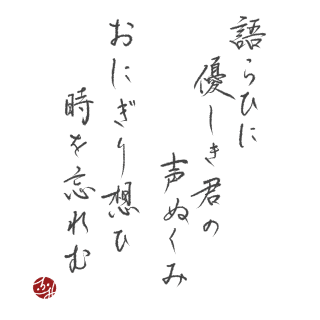 語らひに
優しき君の
声ぬくみ
おにぎり想ひ
時を忘れむ